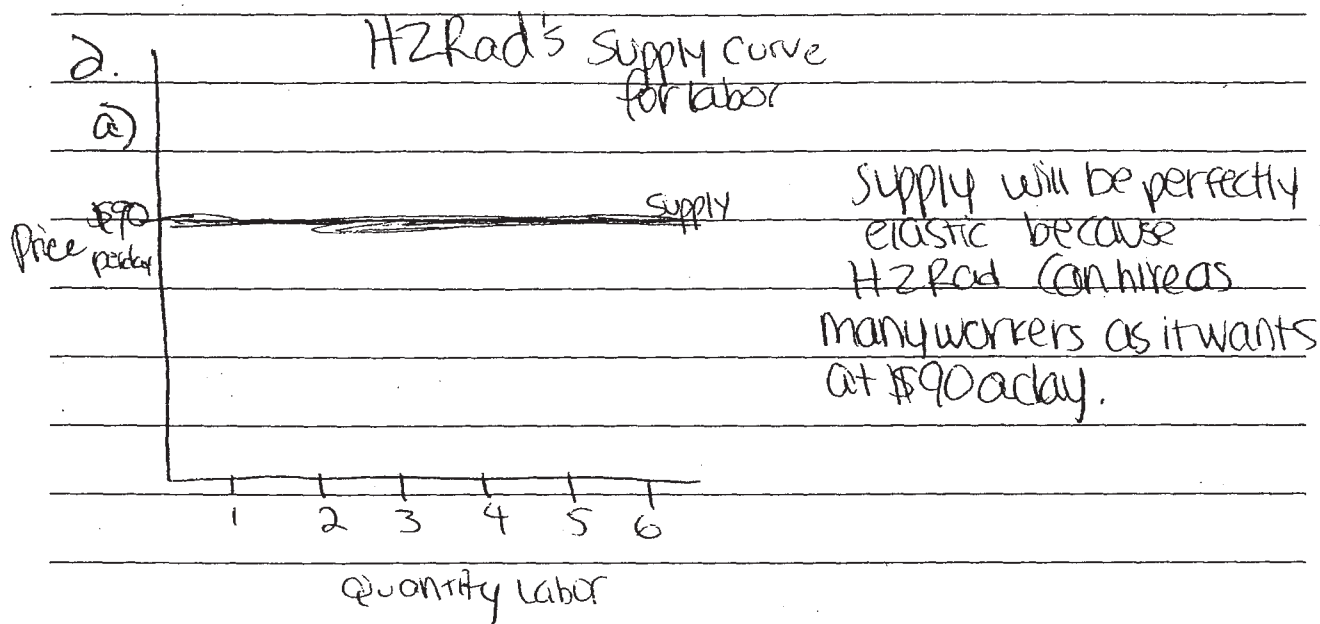 2.
H2Rad's supply curve
for labor
a)
$90
Price per day
supply
Supply will be perfectly
elastic because
H2Rad can hire as
many workers as it wants
at $90 a day.
1 2 3 4 5 6
Quantity Labor